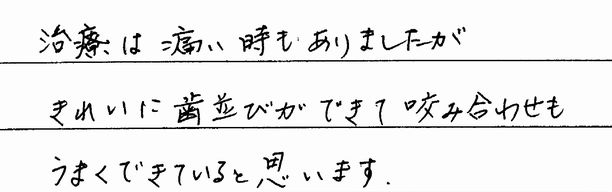 治療は痛い時もありましたが
きれいに歯並びができて咬み合わせも
うまくできていると思います.